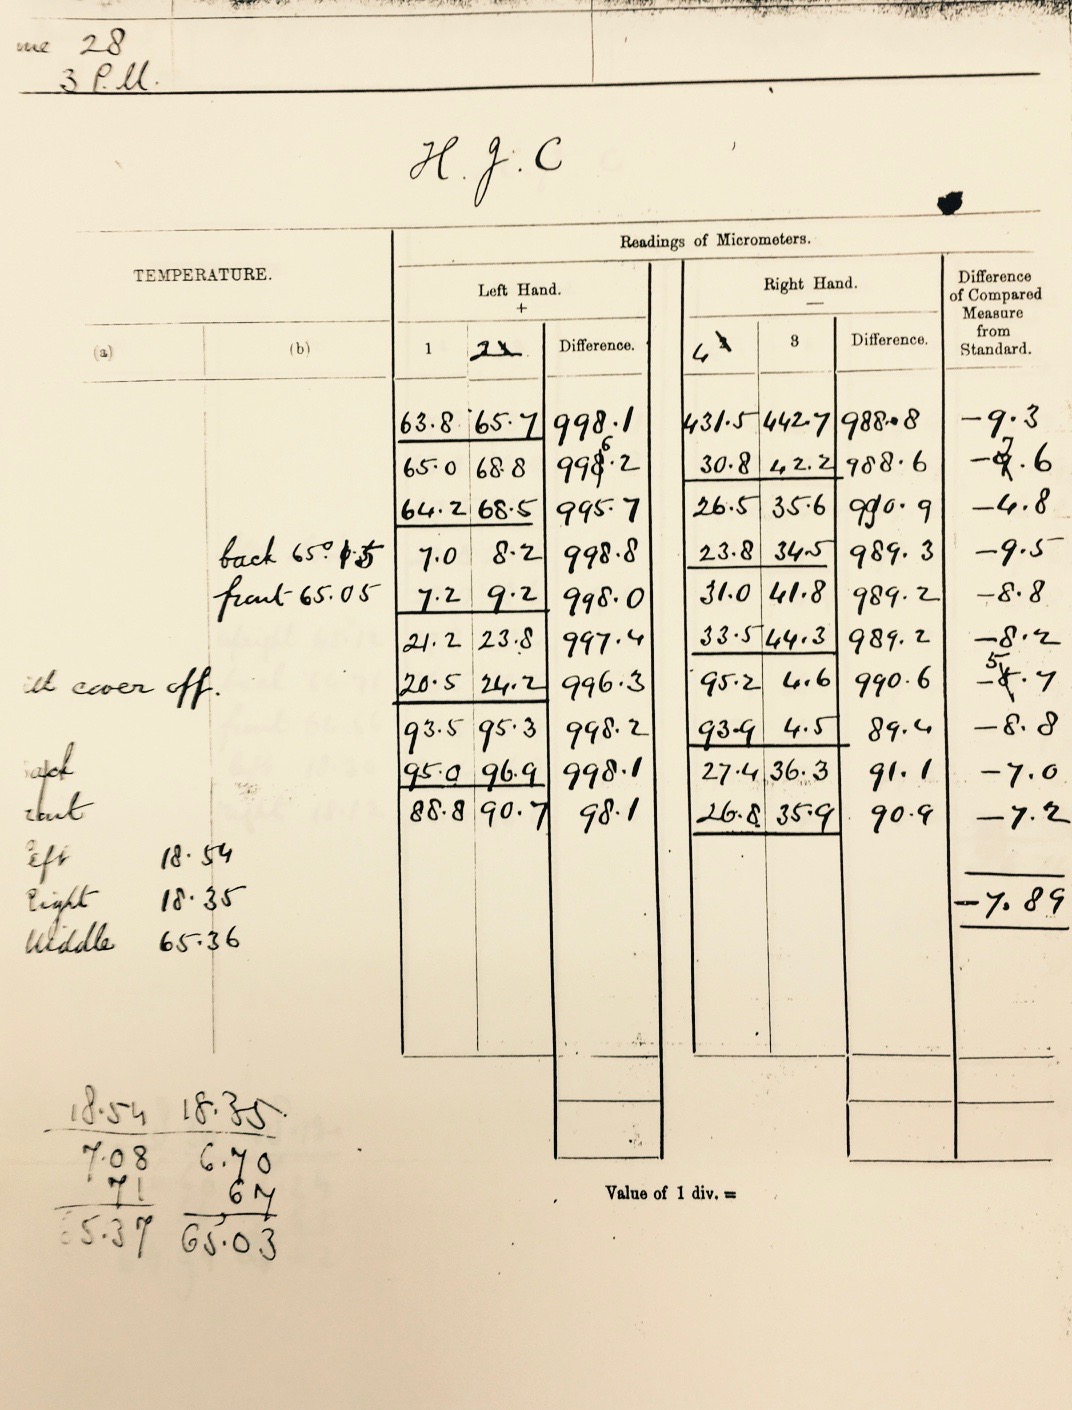 28
3 P.M.
H. J. C
TEMPERATURE.
Readings of Micrometers.
Left Hand.
+
Right Hand.
—
Difference
of Compared
Measure
from
Standard.
(a) (b) 1 2 Difference. 4 3 Difference.
63.8 65.7 998.1 431.5 442.7 988.8 -9.3
65.0 68.8 996.2 30.8 42.2 988.6 -7.6
64.2 68.5 995.7 26.5 35.6 990.9 -4.8
back 65° 7.0 8.2 998.8 23.8 34.5 989.3 -9.5
front 65.05 7.2 9.2 998.0 31.0 41.8 989.2 -8.8
21.2 23.8 997.4 33.5 44.3 989.2 -8.2
cover off. 20.5 24.2 996.3 95.2 4.6 990.6 -5.7
93.5 95.3 998.2 93.9 4.5 89.4 -8.8
95.0 96.9 998.1 27.4 36.3 91.1 -7.0
88.8 90.7 98.1 26.8 35.9 90.9 -7.2
eft 18.54
Right 18.35 -7.89
Middle 65.36
18.54 18.35
7.08 6.70
71 67
5.37 65.03
Value of 1 div. =